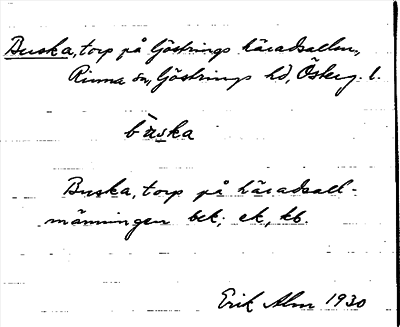 Buska, torp på Göstrings häradsallm.,
Rinna sn, Göstrings hd, Österg. l.
bùska
Buska, torp på häradsall-
männingen bek; ek, kb.
Erik Alm 1930